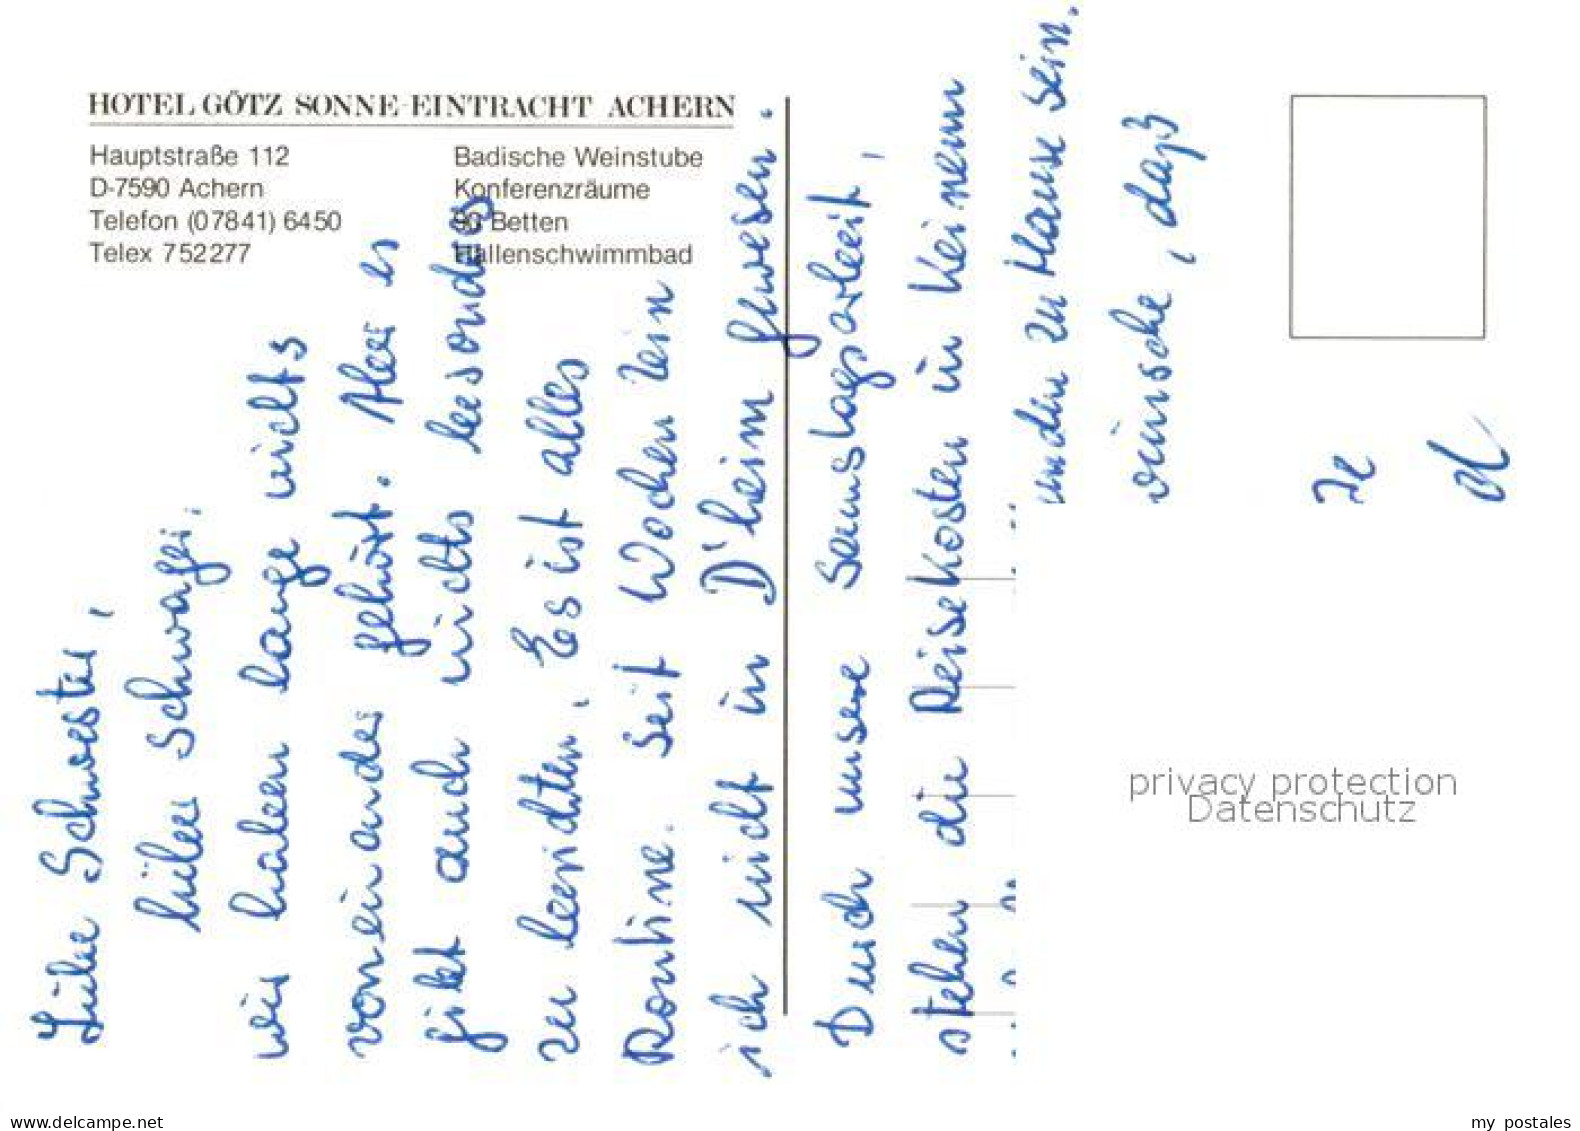 HOTEL GÖTZ SONNE-EINTRACHT ACHERN
Hauptstraße 112
D-7590 Achern
Telefon (07841) 6450
Telex 752277
Badische Weinstube
Konferenzräume
90 Betten
Hallenschwimmbad
Liebe Schwester,
lieber Schwager.
wir haben lange nichts
voneinander gehört. Aber es
gibt auch nichts besonderes
zu berichten. Es ist alles
Routine. Seit Wochen bin
ich nicht in D'heim gewesen.
Durch unsere Samstagsarbeit,
stehen die Reisekosten in keinem
zu Hause sein.
wünsche, daß
privacy protection
Datenschutz
www.delcampe.net
my postales